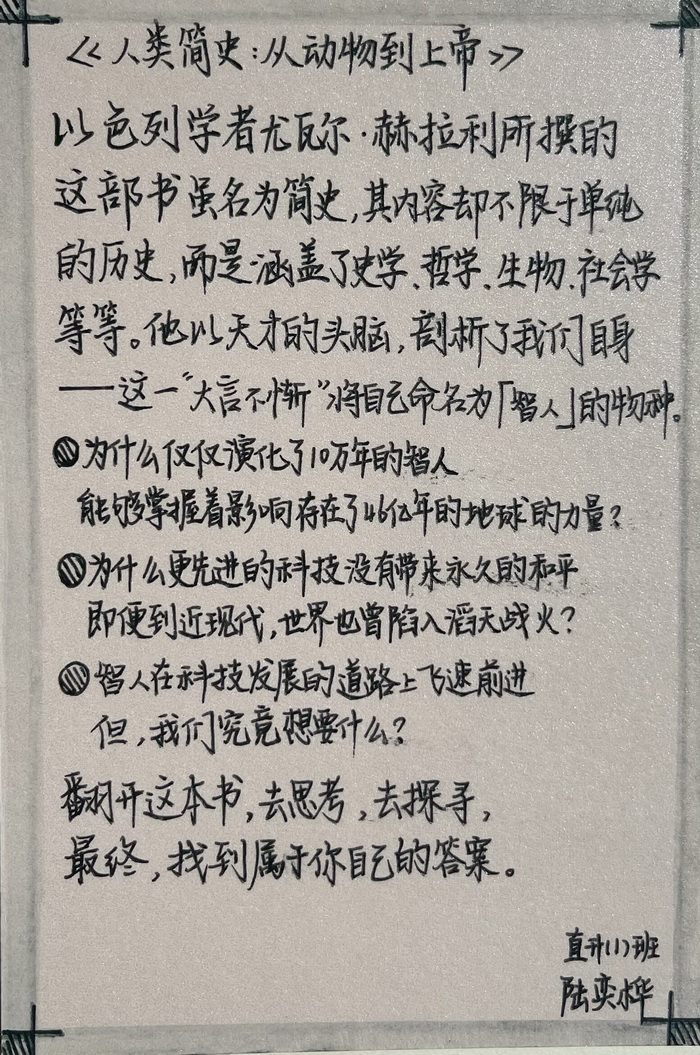 《人类简史:从动物到上帝》
以色列学者尤瓦尔·赫拉利所撰的
这部书虽名为简史,其内容却不限于单纯
的历史,而是涵盖了史学、哲学、生物、社会学
等等。他以天才的头脑,剖析了我们自身
——这一“大言不惭”将自己命名为「智人」的物种。
为什么仅仅演化了10万年的智人
能够掌握着影响存在了46亿年的地球的力量?
为什么更先进的科技没有带来永久的和平
即便到近现代,世界也曾陷入滔天战火?
智人在科技发展的道路上飞速前进
但,我们究竟想要什么?
翻开这本书,去思考,去探寻,
最终,找到属于你自己的答案。
直升(1)班
陆奕桦